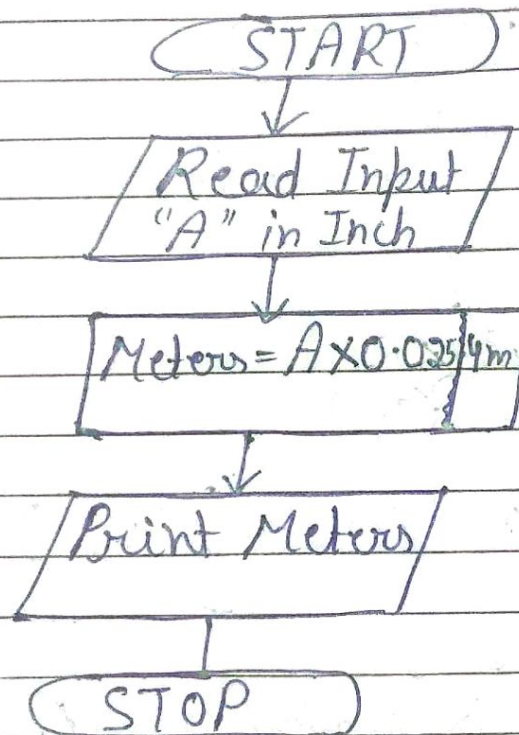 START
Read Input
"A" in Inch
Meters = A×0.0254m
Print Meters
STOP